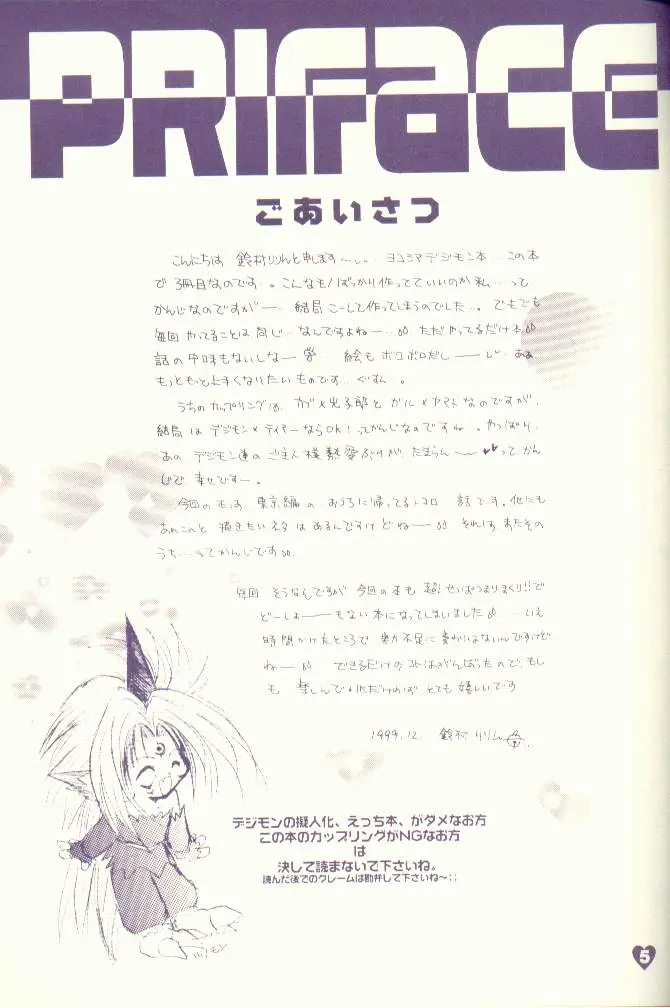 PRIFaCE
ごあいさつ
こんにちは 鈴村りりんと申します ヨコシマデジモン本…この本
で 3冊目なのです…。こんなもんばっかり作ってていいのか私…って
かんじなのですが 結局 こーして作ってしまうのでした。でもでも
毎回 やってることは同じ…なんですよねー… ただやってるだけ
話の中味もないしなー 絵も ボロボロだし
もっともっと上手くなりたい ものです…ぐすん…。
うちのカップリングは、カブ×光子郎と ガル×ヤマト なのですが、
結局は デジモン×テイマーならOK!ってかんじなのですね。やっぱり、
あの デジモン達の ご主人様熱愛ぶりが、たまらん〜♥♥って かん
じで 幸せですー。
今回のも、東京編の おうちに帰ってるトコロ 話です。他にも
あれこれと 描きたいネタ はあるんですけどねー それは またその
うち…ってかんじです
毎回 そうなんですが 今回の本も 超!せっぱつまりまくり!!で
どーしよーもない本になってしまいました …いえ
時間かけたところで 実力不足に変わりはないんですけど
ねー できるだけの コトはがんばったので、もし
も 楽しんでいただければ とても嬉しいです
1999.12. 鈴村りりん
デジモンの擬人化、えっち本、がダメなお方
この本のカップリングがNGなお方
は
決して読まないで下さいね。
読んだ後でのクレームは勘弁して下さいね〜；；
ツノモン
5